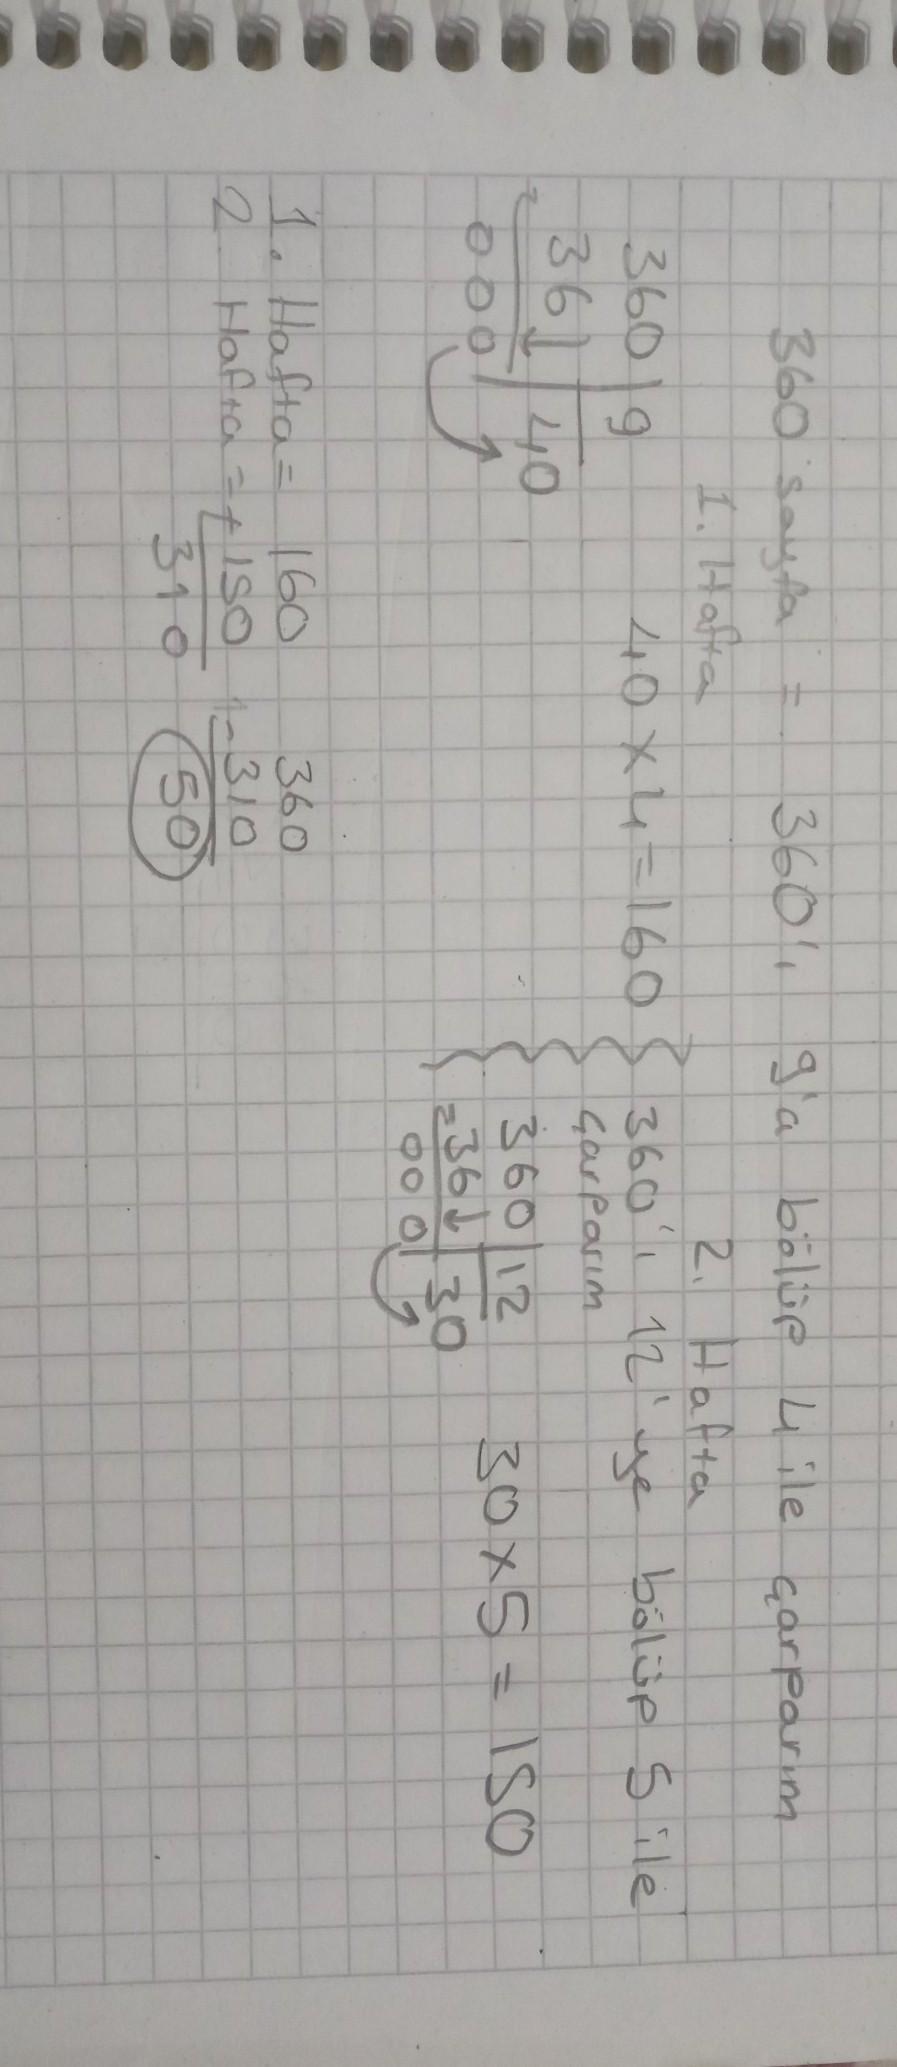 360 sayfa = 360'ı 9'a bölüp 4 ile çarparım
1. Hafta
360 | 9
36 | 40
000
40 x 4 = 160
2. Hafta
360'ı 12'ye bölüp 5 ile
çarparım
360 | 12
- 36 | 30
000
30 x 5 = 150
1. Hafta = 160
2 Hafta = + 150
310
360
- 310
50